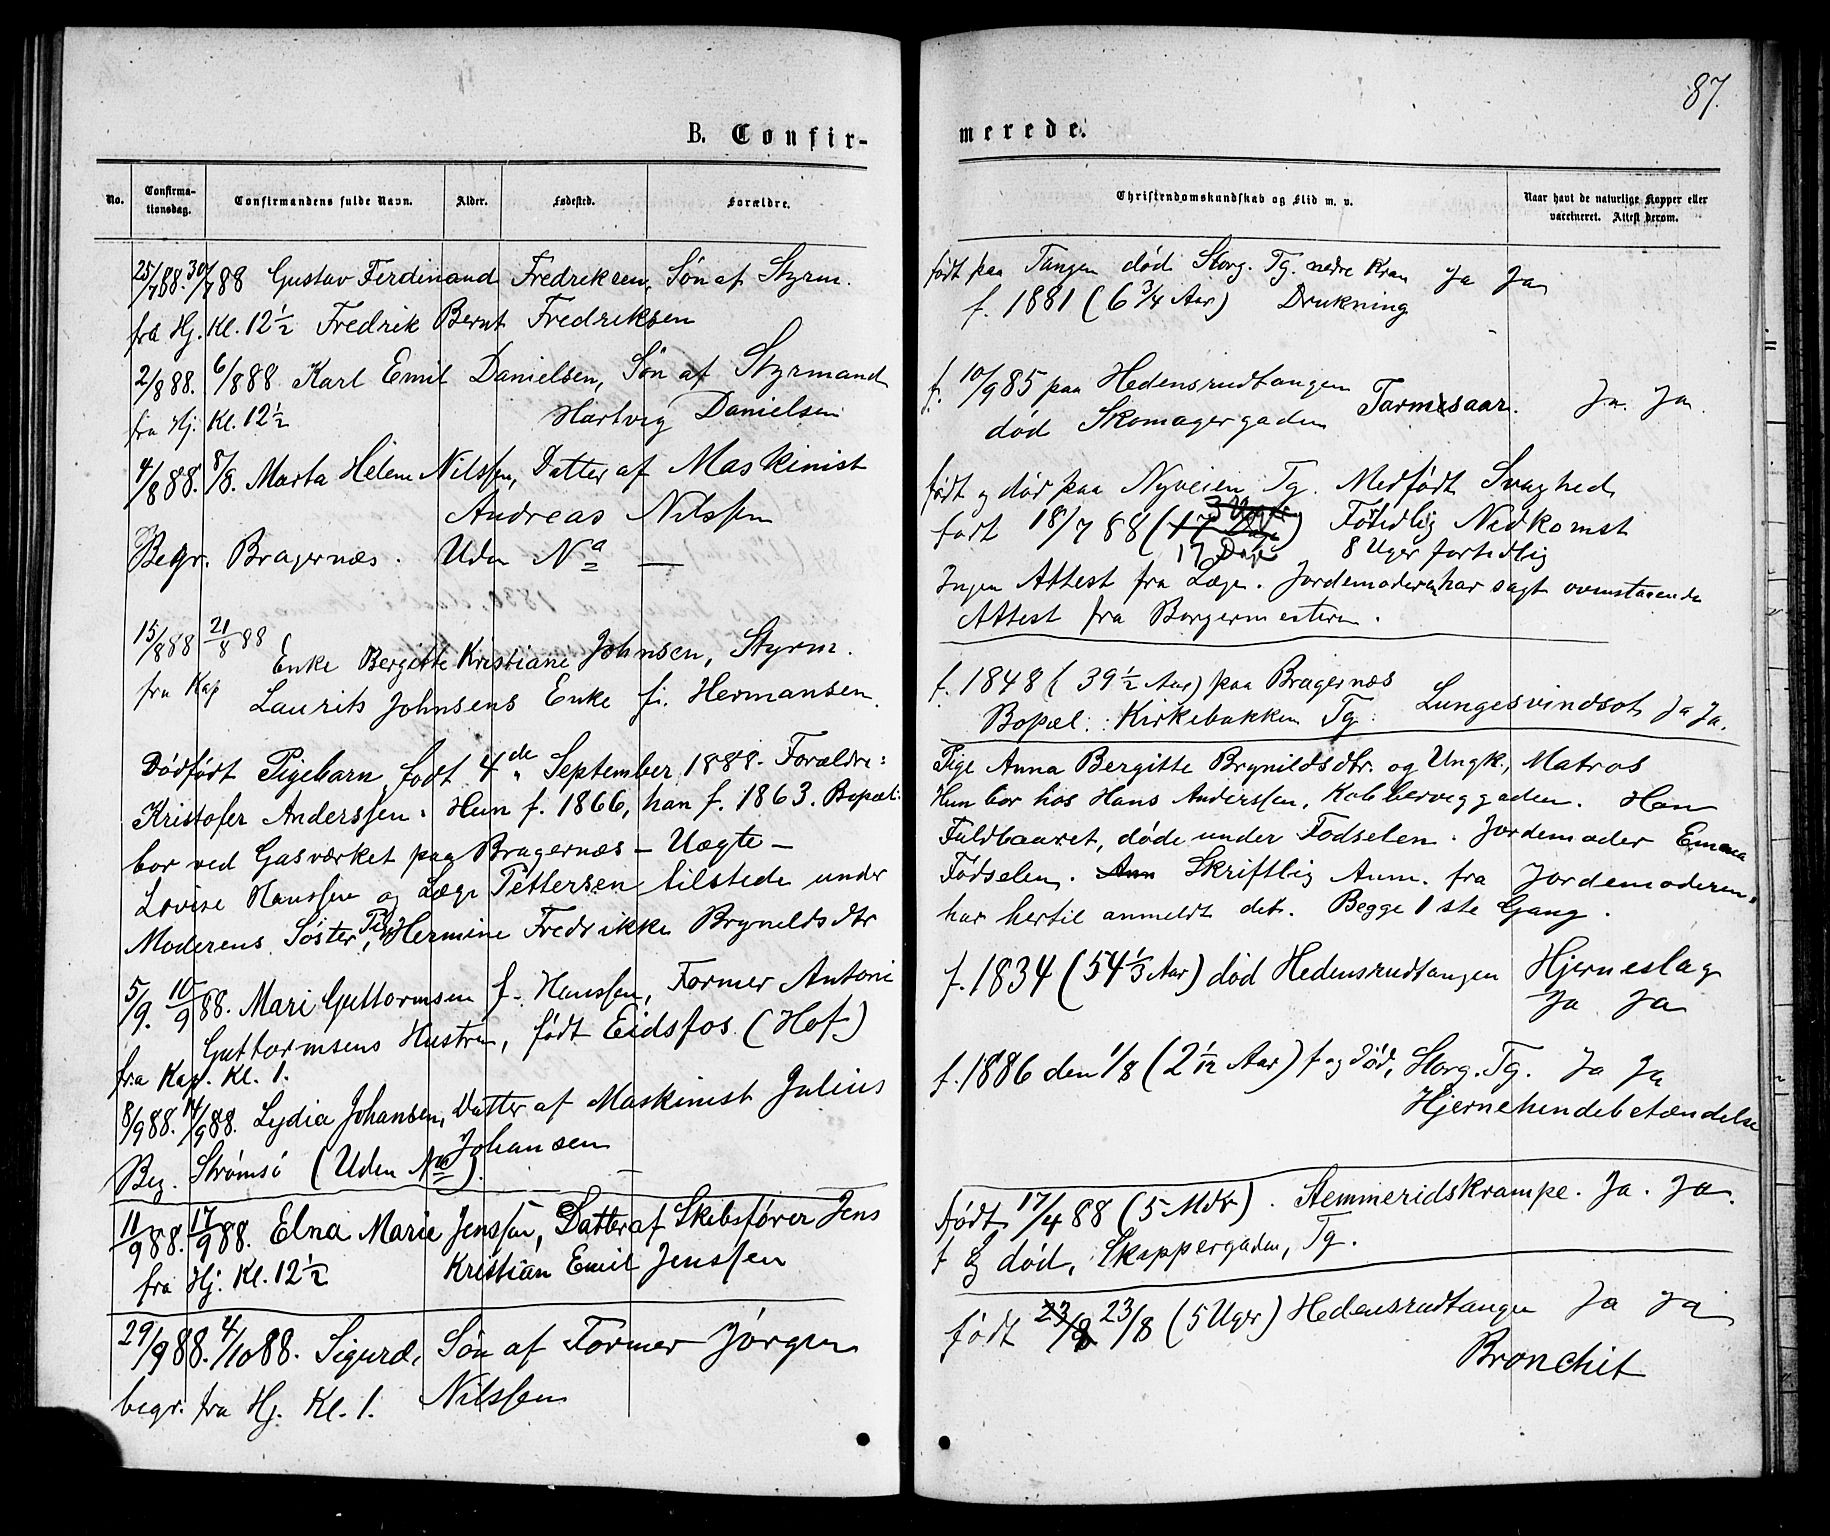 B. Confir-
No.
Confirma-
tionsdag.
Confirmandens fulde Navn.
Alder.
Fødested.
Forældre.
25/7 88. 30/7 88 Gustav Ferdinand Fredriksen, Søn af Styrm.
fra Hj. Kl. 12 1/2 Fredrik Bernt Fredriksen
2/8 88. 6/8 88 Karl Emil Danielsen, Søn af Styrmand
fra Hj. Kl. 12 1/2 Hartvig Danielsen
4/8 88. 8/8. Marta Helene Nilssen, Datter af Maskinist
Andreas Nilssen
Begr. Bragernæs. Uden Na —
15/8 88 21/8 88
Enke Bergitte Kristiane Johnsen, Styrm.
fra Kap Laurits Johnsens Enke f. Hermansen.
Dødfødt Pigebarn, født 4de September 1888. Forældre:
Kristofer Anderssen. Hun f. 1866, han f. 1863. Bopæl:
bor ved Gasværket paa Bragernæs — Uægte —
Lovise Hanssen og Læge Pettersen tilstede under
Moderens Søster, Pige Hermine Fredrikke Brynildsdtr
5/9. 10/9 88. Mari Guttormsen f. Hanssen, Former Antoni
Guttormsens Hustru, født Eidsfos (Hof)
fra Kap. Kl. 1.
8/9 88. 14/9 88. Lydia Johansen, Datter af Maskinist Julius
Johansen
Beg. Strømsø (Uden Na). —
11/9 88. 17/9 88. Elna Marie Jenssen, Datter af Skibsfører Jens
fra Hj. Kl. 12 1/2 Kristian Emil Jenssen
29/9 88. 4/10 88. Sigurd, Søn af Former Jørgen
begr. fra Hj. Kl. 1. Nilssen
87.
merede.
Christendomskundskab og Flid m. v.
Naar havt de naturlige Kopper eller
vaccineret. Attest derom.
født paa Tangen død Storg. Tg. nedre Kran Ja Ja
f. 1881 (6 3/4 Aar) Drukning
f. 10/9 85 paa Hedensrudtangen
død Skomagergaden Tarmsaar. Ja. Ja.
født og død paa Nyveien Tg. Medfødt Svaghed
3 Uger
født 18/7 88 (17 Dage) Førtidlig Nedkomst
17 Dage 8 Uger fortidlig
Ingen Attest fra Læge. Jordemoderen har sagt ovenstaaende
Attest fra Borgermesteren.
f. 1848 (39 1/2 Aar) paa Bragernæs
Bopæl: Kirkebakken Tg. Lungesvindsot Ja Ja.
Pige Anna Bergitte Brynildsdtr. og Ungk., Matros
Hun bor hos Hans Anderssen, Kobberviggaden. Han
Fuldbaaret, døde under Fødselen. Jordemoder Emma
Fødselen. Ann Skriftlig Anm. fra Jordemoderen.
har hertil anmeldt det. Begge 1ste Gang.
f. 1834 (54 1/3 Aar) død Hedensrudtangen Hjerneslag
Ja Ja
f. 1886 den 1/8 (2 1/12 Aar) f og død, Storg. Tg. Ja Ja
Hjernehindebetændelse
Født 17/4 88 (5 Mdr). Stemmeridskrampe. Ja. Ja.
f og død, Skippergaden, Tg.
født 23/8 23/8 (5 Uger) Hedensrudtangen Ja Ja
Bronchit